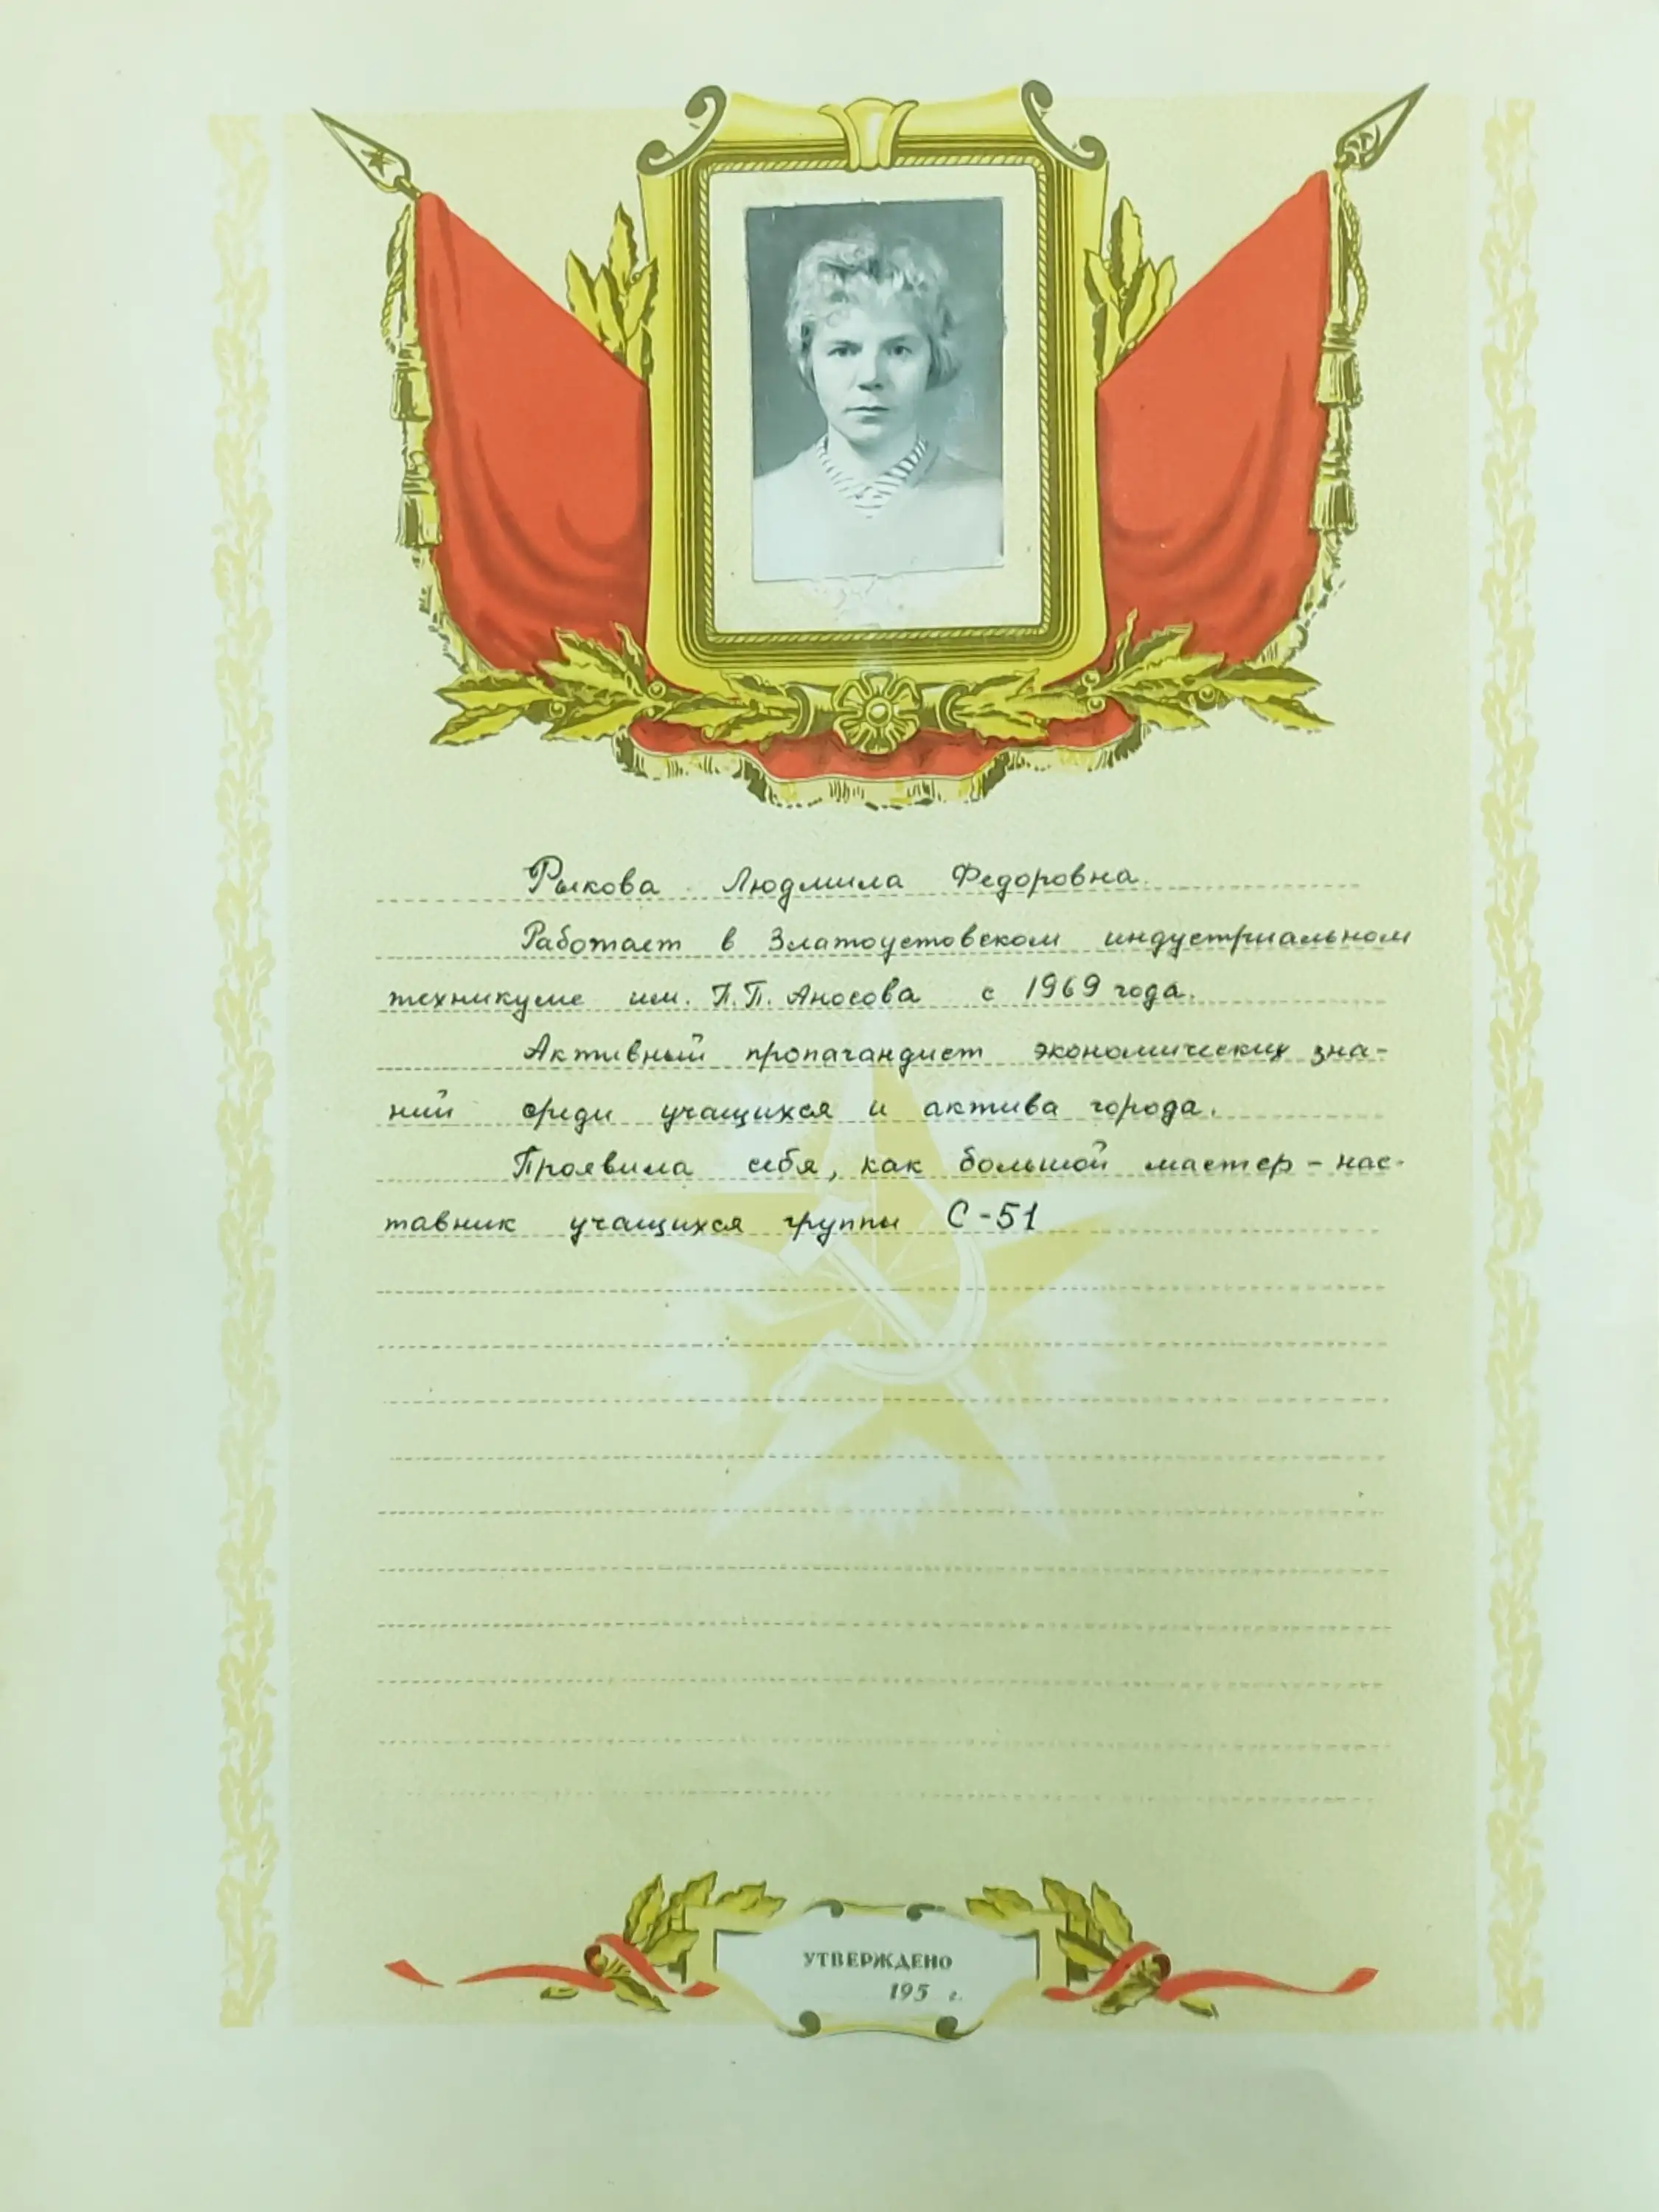 Рыкова Людмила Федоровна
Работает в Златоустовском индустриальном
техникуме им. П.П. Аносова с 1969 года.
Активный пропагандист экономических зна-
ний среди учащихся и актива города.
Проявила себя, как большой мастер-нас-
тавник учащихся группы С-51
УТВЕРЖДЕНО
195 г.